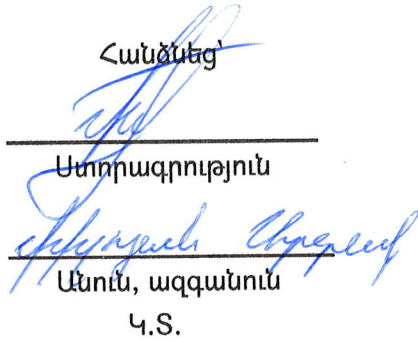 Հանձնեց՝
Ստորագրություն
Անուն, ազգանուն
Կ.Տ.